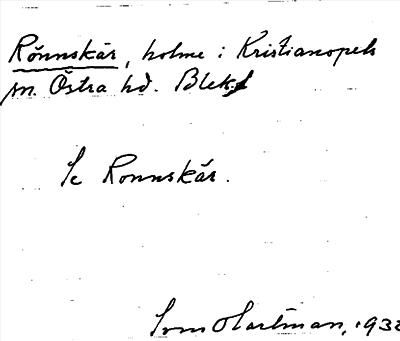 Rönnskär, holme i Kristianopels
sn. Östra hd. Blek.
Se Ronnskär.
Sven O Hartman, 1932